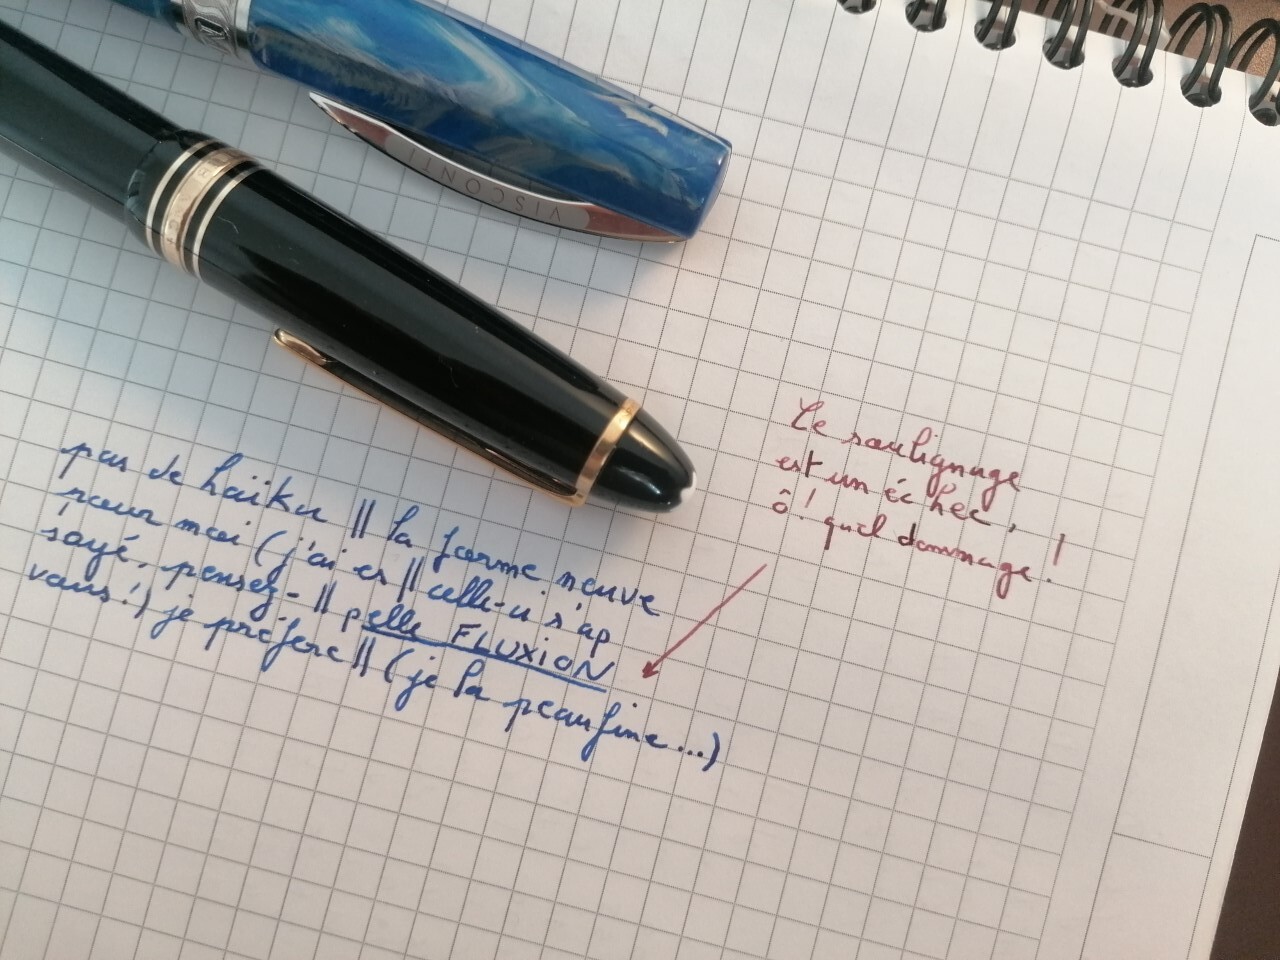 VISCONTI
pas de haïku || la forme neuve
pour moi (j'ai es || celle-ci s'ap
sayé, pensez- || pelle FLUXiON
vous!) je préfère || (je la peaufine...)
Le soulignage
est un échec,
ô! quel dommage!